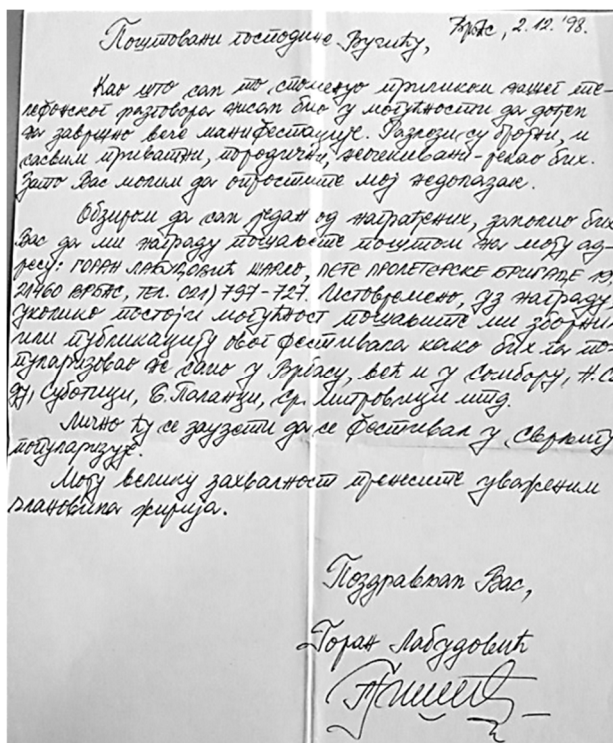 Врбас, 2.12.'98.
Поштовани господине Вучићу,
Као што сам то споменуо приликом нашег те-
лефонског разговора нисам био у могућности да дођем
на завршно вече манифестације. Разлози су бројни, и
сасвим приватни, породични, неочекивани - рекао бих.
Зато Вас молим да опростите мој недолазак.
Обзиром да сам један од награђених, замолио бих
Вас да ми награду пошаљете поштом на моју ад-
ресу: ГОРАН ЛАБУДОВИЋ ШАРЛО, ПЕТЕ ПРОЛЕТЕРСКЕ БРИГАДЕ
21460 ВРБАС, ТЕЛ. 021) 797-727. Истовремено, уз награду
уколико постоји могућност пошаљите ми зборник
или публикацију овог фестивала како бих га по-
пуларизовао не само у Врбасу, већ и у Сомбору, Н.С.
Суботици, Б. Паланци, Ср. Митровици итд.
Лично ћу се заузети да се фестивал у Сврљигу
популаризује.
Моју велику захвалност пренесите уваженим
члановима жирија.
Поздрављам Вас,
Горан Лабудовић